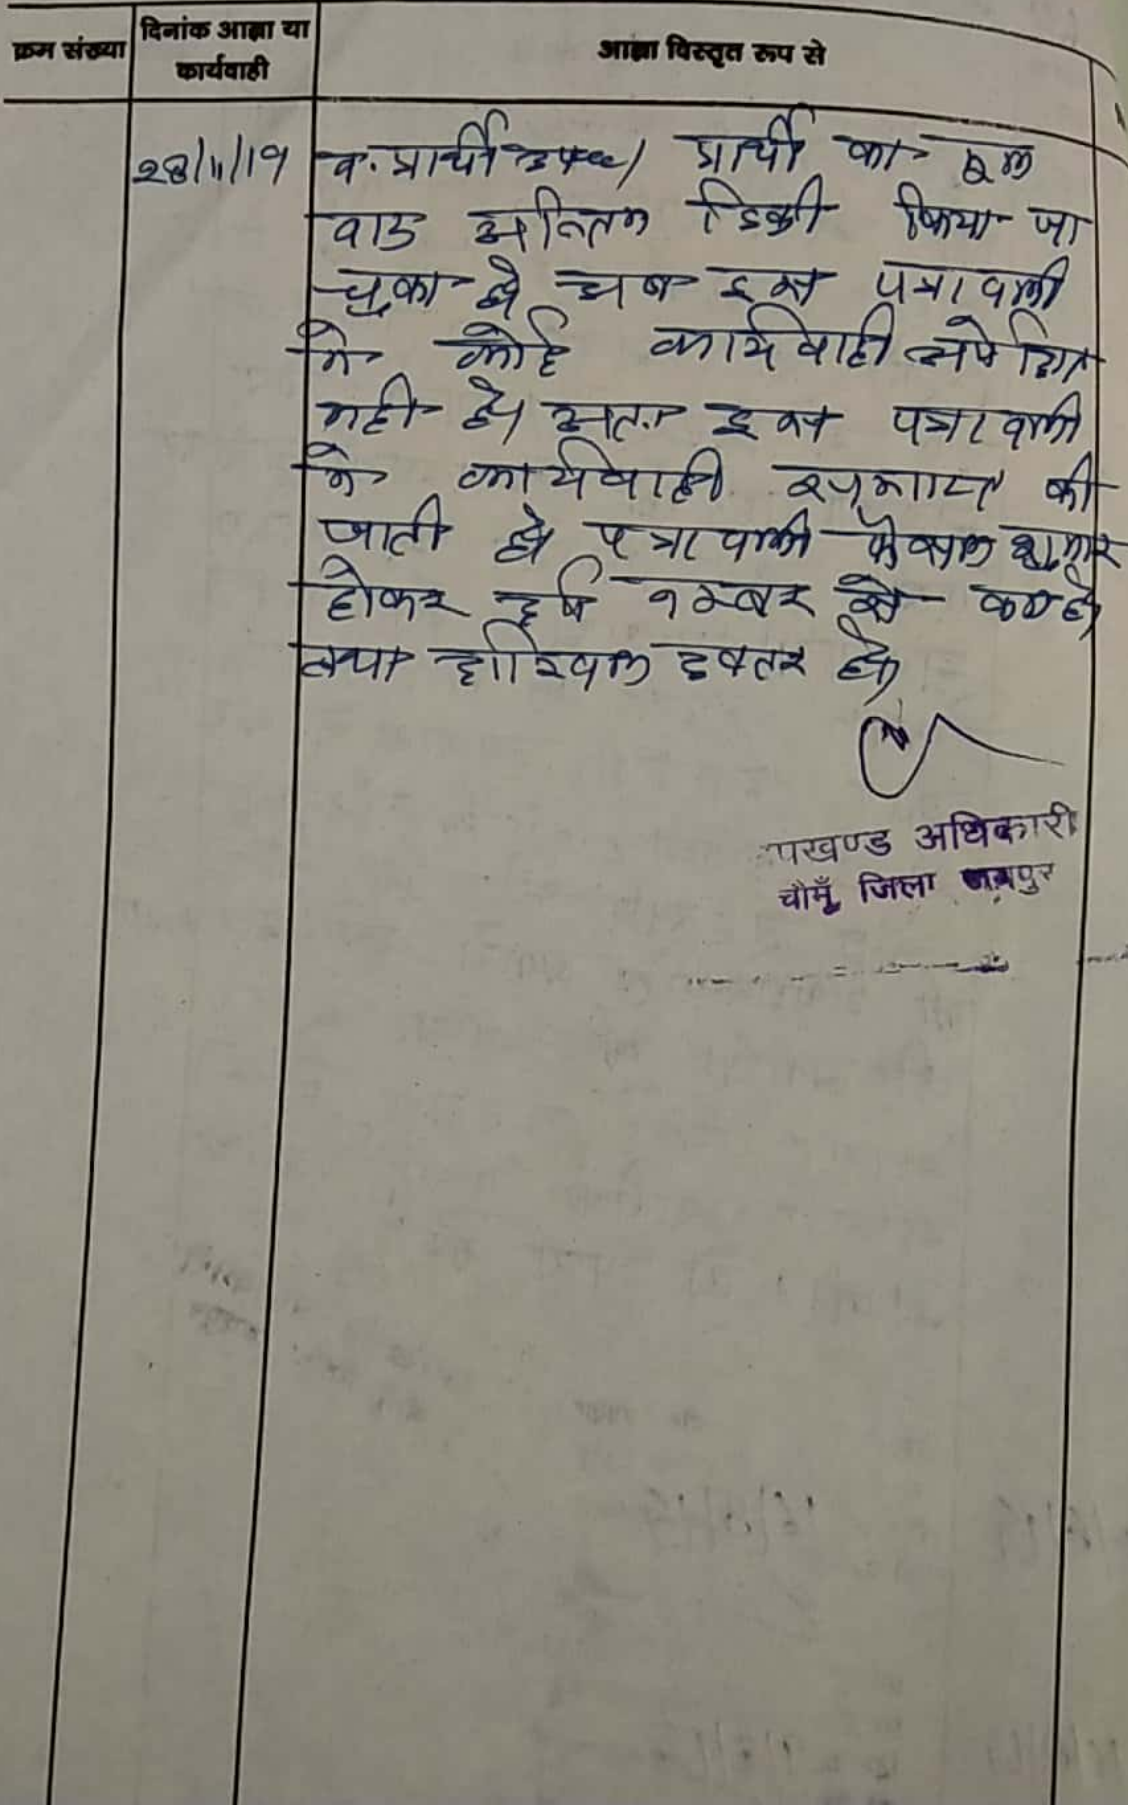 क्रम संख्या
दिनांक आज्ञा या
कार्यवाही
आज्ञा विस्तृत रूप से
28/11/19
व. प्रार्थी उप0। प्रार्थी का मूल
वाद अन्तिम डिक्री किया जा
चुका है अब इस पत्रावली
मे कोई कार्यवाही अपेक्षित
नही है। अतः इस पत्रावली
मे कार्यवाही समाप्त की
जाती है पत्रावली फैसल शुमार
होकर दर्ज नम्बर से कम हो
तथा दाखिल दफ्तर हो।
पखण्ड अधिकारी
चौमूँ जिला जयपुर